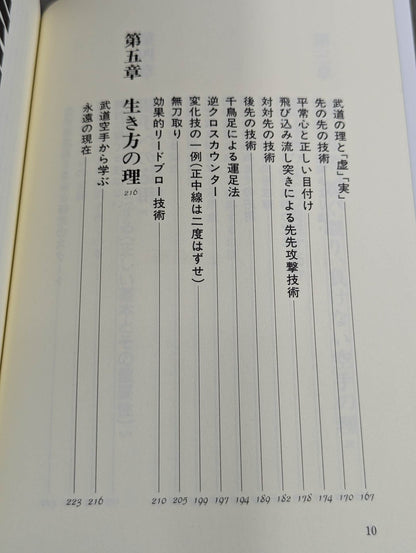 武道の理と「虚」「実」 167
先の先の技術 170
平常心と正しい目付け 174
飛び込み流し突きによる先先攻撃技術 178
対対先の技術 182
後先の技術 189
千鳥足による運足法 194
逆クロスカウンター 197
変化技の一例(正中線は二度はずせ) 199
無刀取り 205
効果的リードブロー技術 210
第五章 生き方の理 216
武道空手から学ぶ 216
永遠の現在 223
10